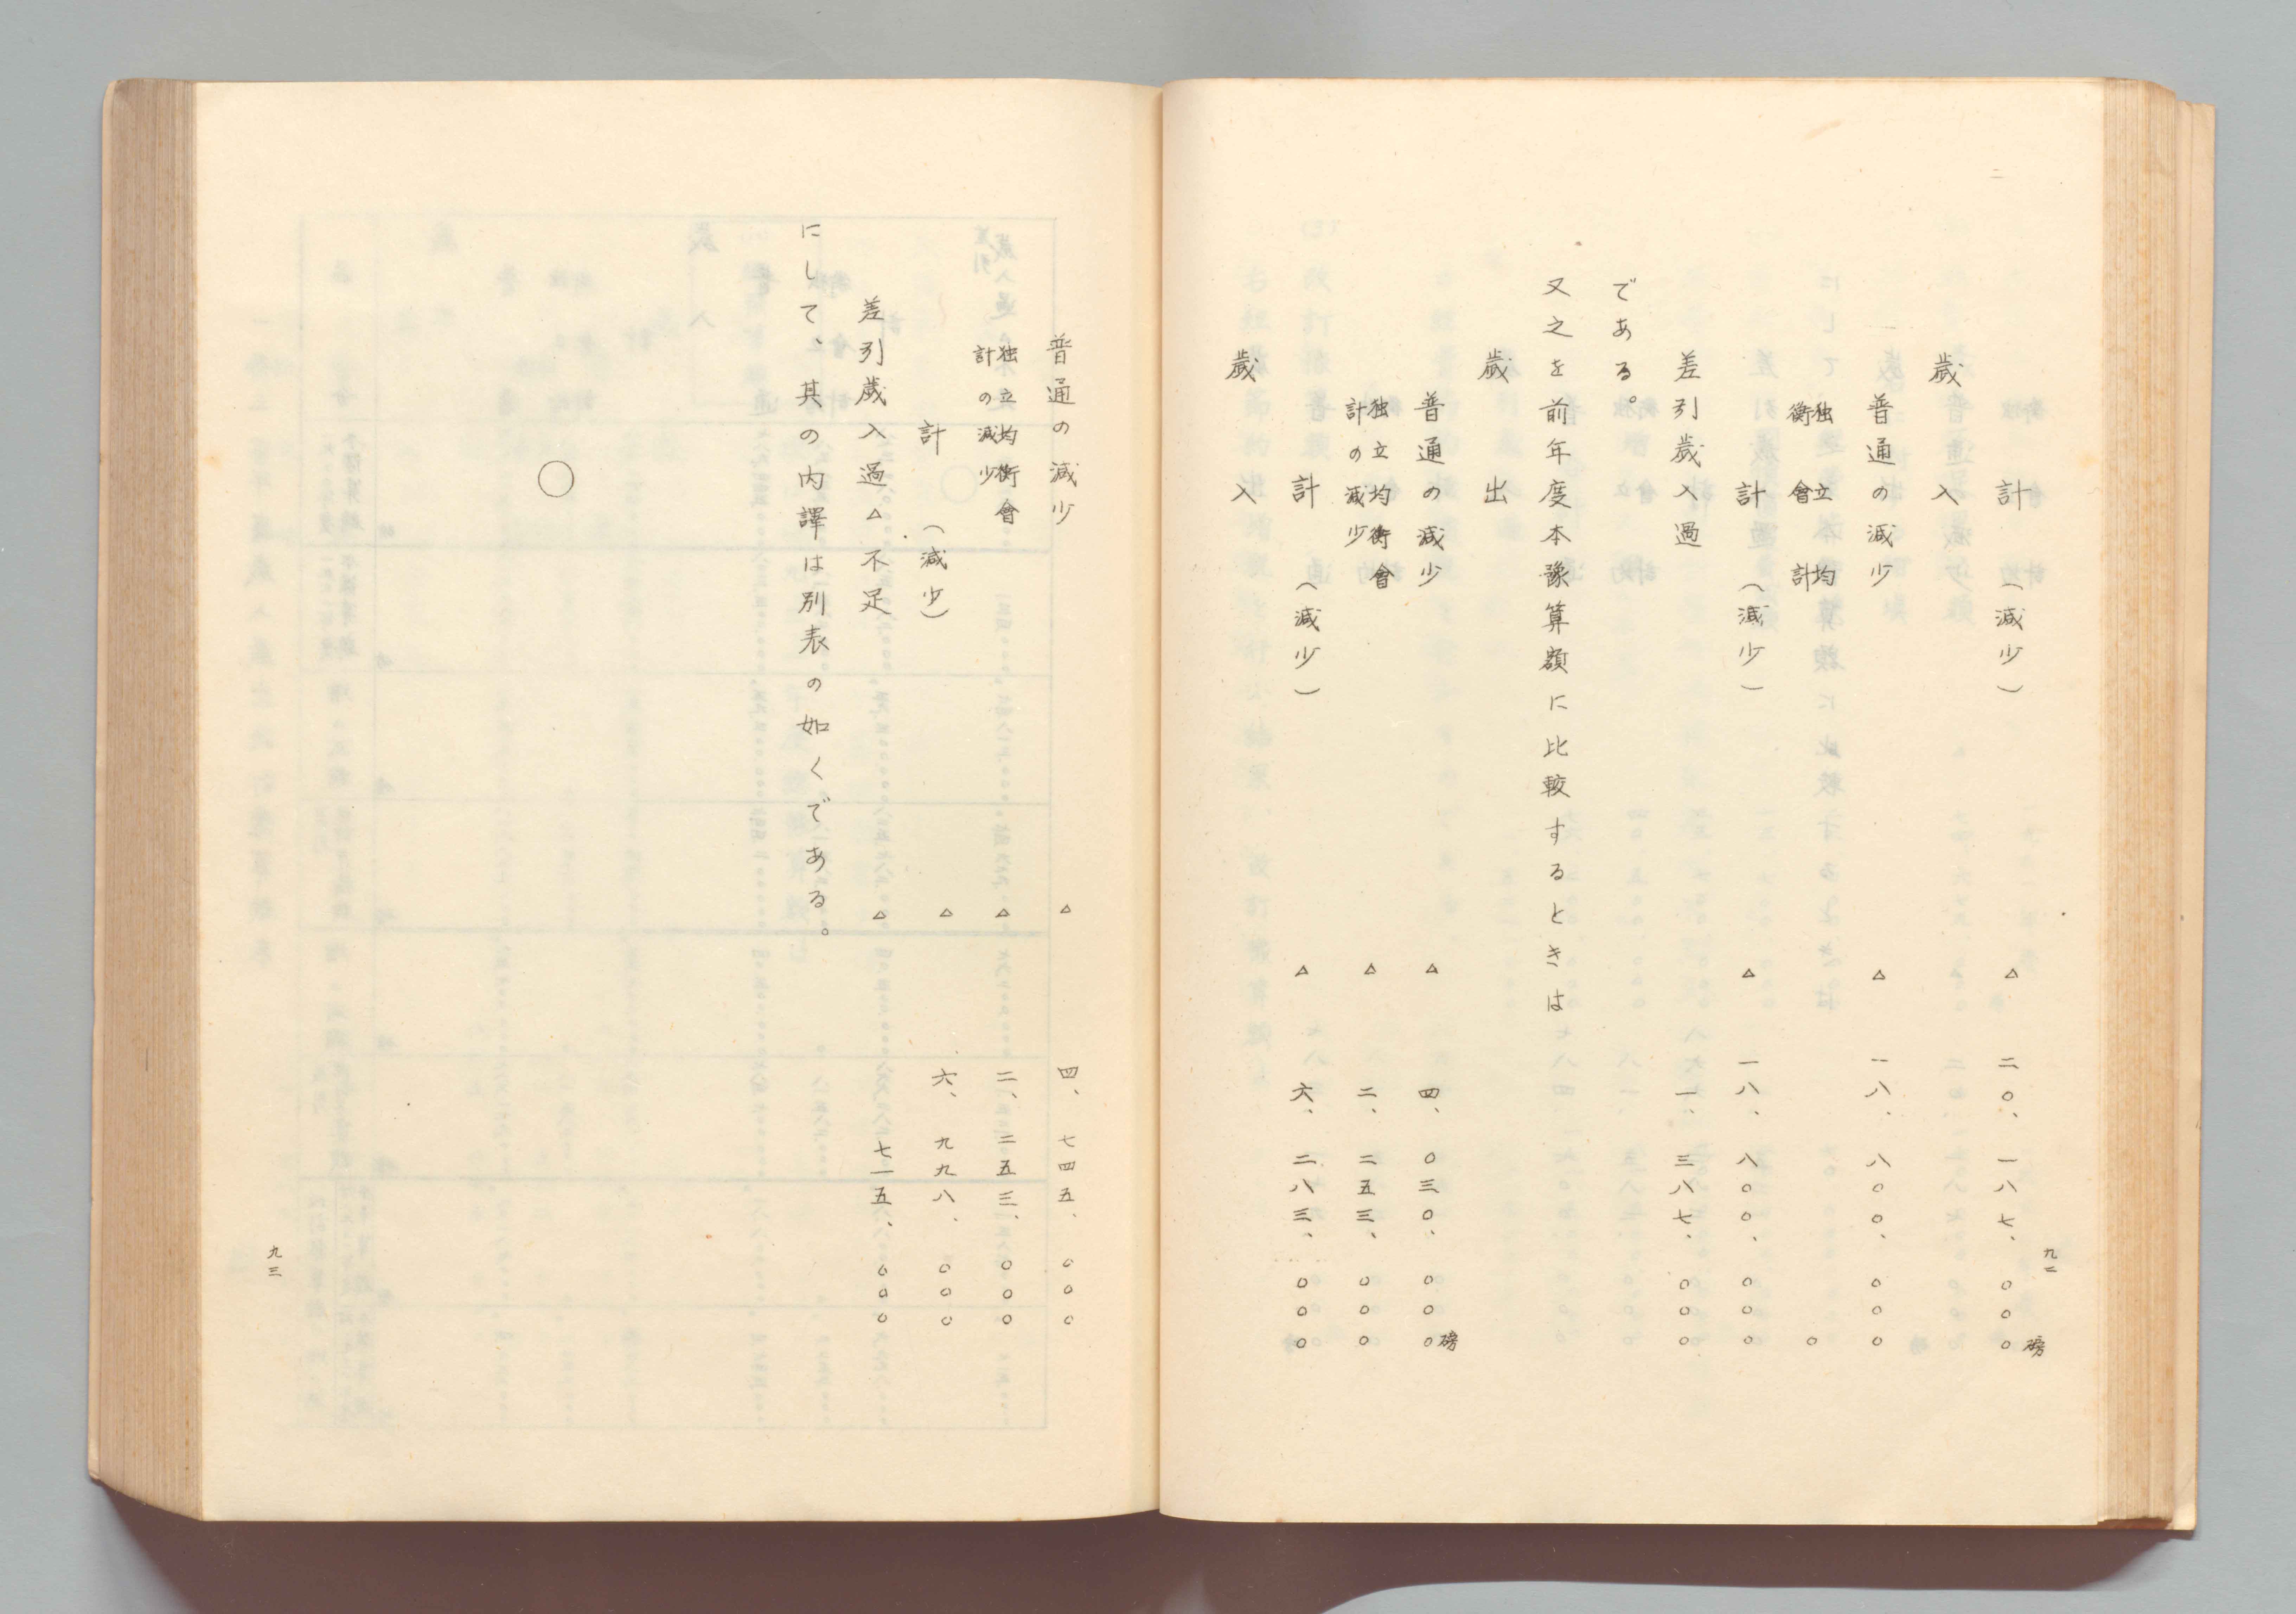 九二
計　（減少）　△　二〇、一八七、〇〇〇磅
歲入
普通の減少　△　一八、八〇〇、〇〇〇
独立均衡會計　〇
計　（減少）　△　一八、八〇〇、〇〇〇
差引歲入過　一、三八七、〇〇〇
である。
又之を前年度本豫算額に比較するときは
歲出
普通の減少　△　四、〇三〇、〇〇〇磅
独立均衡會計の減少　△　二、二五三、〇〇〇
計　（減少）　△　六、二八三、〇〇〇
歲入
普通の減少　△　四、七四五、〇〇〇
独立均衡會計の減少　△　二、二五三、〇〇〇
計　（減少）　△　六、九九八、〇〇〇
差引歲入過△不足　△　七一五、〇〇〇
にして、其の内譯は別表の如くである。
〇
九三